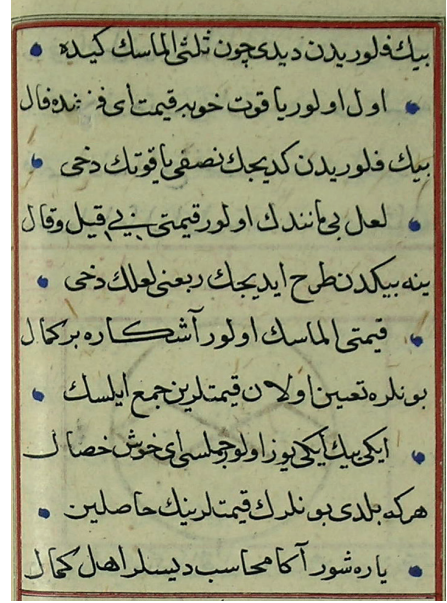 بيك فلوريدن ديدى چون ثلثى الماسك كيده
اول اولور ياقوت خوبه قيمت اى فرخنده فال
بيك فلوريدن كديجك نصفى ياقوتك دخى
لعل بى مانندك اولور قيمتى بى قيل وقال
ينه بيكدن طرح ايديجك ربعنى لعلك دخى
قيمتى الماسك اولور آشكاره بر كمال
بونلره تعيين اولان قيمتلرين جمع ايلسك
ايكى بيك ايكى يوز اولور جملسى اى خوش خصال
هركه بلدى بونلرك قيمتلرينك حاصلين
ياره شور آكا محاسب ديسلر اهل كمال